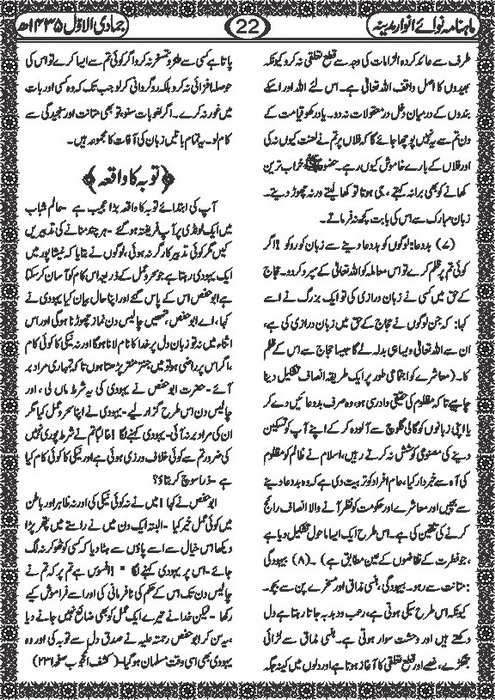 ماہنامہ نوائے انوار مدینہ
22
جمادی الاوّل ۱۴۳۵ھ
طرف سے عائد کردہ الزامات کی وجہ سے قطع تعلقی نہ کرو کیونکہ
بھیدوں کا اصل واقف اللہ تعالیٰ ہی ہے۔ اس لئے اللہ اور اسکے
بندوں کے درمیان دخل در معقولات نہ دو۔ یاد رکھو قیامت کے
دن تم سے یہ نہیں پوچھا جائے گا کہ فلاں پر تم نے لعنت کیوں نہ کی
اور فلاں کے بارے خاموش کیوں رہے۔ حضور ﷺ خراب ترین
کھانے کو بھی برا نہ کہتے ، جی ہوتا تو کھا لیتے ورنہ چھوڑ دیتے۔
زبان مبارک سے اس کی بابت کچھ نہ فرماتے۔
(۷) بددعا: لوگوں کو بددعا دینے سے زبان کو روکو ! اگر
کوئی تم پر ظلم کرے تو اس معاملہ کو اللہ تعالیٰ کے سپرد کردو۔ حجاج
کے حق میں کسی نے زبان درازی کی تو ایک بزرگ نے اسے
کہا: کہ جن لوگوں نے حجاج کے حق میں زبان درازی کی ہے،
ان سے اللہ تعالیٰ ویسا ہی بدلہ لے گا جیسا حجاج سے اس کے ظلم
کا۔ (معاشرے کو اجتماعی طور پر ایک طریقہ انصاف تشکیل دینا
چاہیے تاکہ مظلوم کی حقیقی دادرسی ہو، وہ صرف بددعائیں دے کر
یا اپنی زبانوں کو گالی گلوچ سے آلودہ کرکے اپنے آپ کو تسکین
دینے کی مصنوعی کوشش نہ کرتے رہیں، اسلام نے ظالم کو مظلوم
کی آہ سے خبردار کیا، عام افراد کو تربیت دی ہے کہ وہ بددعا دینے
سے بچیں اور معاشرے اور حکومت کو نظر آنے والا انصاف رائج
کرنے کی تلقین کی ہے۔ اس طرح ایک ایسا ماحول تشکیل دیا ہے
، جو فطرت کے تقاضوں کے عین مطابق ہے)۔ (۸) بیہودگی
: متانت سے رہو۔ بیہودگی، ہنسی مذاق اور مسخرے پن سے بچو۔
کیونکہ اس طرح سبکی ہوتی ہے، رعب و دبدبہ جاتا رہتا ہے دل
دکھتے ہیں اور وحشت سوار ہوتی ہے۔ ہنسی مذاق سے لڑائی
جھگڑے، غصے اور قطع تعلقی کا آغاز ہوتا ہے اور دلوں میں کینہ جگہ
پاتا ہے کسی سے طنز و تمسخر نہ کرو اگر کوئی تم سے ایسا کرے تو اس کی
حوصلہ افزائی نہ کرو بلکہ روگردانی کرلو جب تک کہ وہ کسی اور بات
میں غور نہ کرے۔ اگر لغویات سنو تو بھی متانت اور سنجیدگی سے
کام لو۔ یہ تمام باتیں زبان کی آفات کا مجموعہ ہیں۔
﴿توبہ کا واقعہ﴾
آپ کی ابتدائے توبہ کا واقعہ بڑا عجیب ہے ۔ عالم شباب
میں ایک لونڈی پر آپ فریفتہ ہو گئے ۔ ہر چند منانے کی تدبیریں
کیں مگر کوئی تدبیر کارگر نہ ہوئی، لوگوں نے بتایا کہ نیشاپور میں
ایک یہودی رہتا ہے جو سحر و عمل کے ذریعہ اس کام کو آسان کرسکتا
ہے ابو حفص اس کے پاس گئے اور اپنا حال بیان کیا یہودی نے
کہا ، اے ابو حفص ، تمہیں چالیس دن نماز چھوڑنا ہوگی اور اس
اثناء میں نہ تو زبان دل پر خدا کا نام لانا ہوگا اور نہ نیکی کا کوئی کام
، اگر اس پر راضی ہو تو میں جنتر منتر پڑھتا ہوں تاکہ تمہاری مراد بر
آئے۔ حضرت ابو حفص نے یہودی کی یہ شرط مان لی ، اور
چالیس دن اس طرح گزار لیے ۔ یہودی نے اپنا سحر و عمل کیا مگر
ان کی مراد بر نہ آئی۔ یہودی کہنے لگا ! غالباً تم نے شرط پوری نہیں
کی ضرور تم سے کوئی خلاف ورزی ہوئی ہے اور نیکی کا کوئی کام کیا
ہے ۔ ذرا سوچ کر بتاؤ؟
ابو حفص نے کہا ! میں نے نہ کوئی نیکی کی اور نہ ظاہر اور باطن
میں کوئی عمل خیر کیا ۔ البتہ ایک دن میں نے راستے میں پتھر پڑا
دیکھا اس خیال سے اسے پاؤں سے ہٹا دیا کہ کسی کو ٹھوکر نہ لگ
جائے۔ اس پر یہودی کہنے لگا " افسوس ہے تم پر کہ تم نے
چالیس دن تک اس کے حکم کی نافرمانی کی اور اسے فراموش کیے
رکھا ۔ لیکن خدا نے تیرے ایک عمل کو بھی ضائع نہیں جانے دیا
، یہ سن کر ابو حفص رحمتہ علیہ نے صدق دل سے توبہ کی اور وہ
یہودی بھی اسی وقت مسلمان ہوگیا۔ (کشف المحجوب صفحہ ۲۳۱)